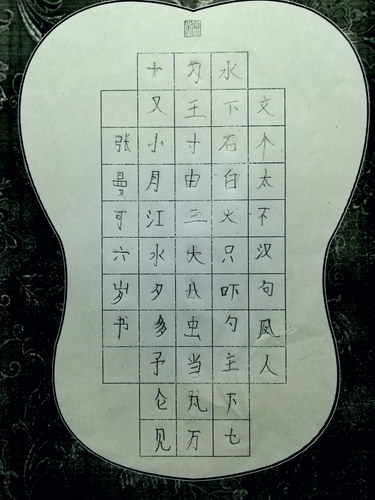 文个太不汉句风人
水下石白火只吓勺主下七
王寸由三火八虫当凡万
十又小月江水夕多予仑见
张曼可六岁书